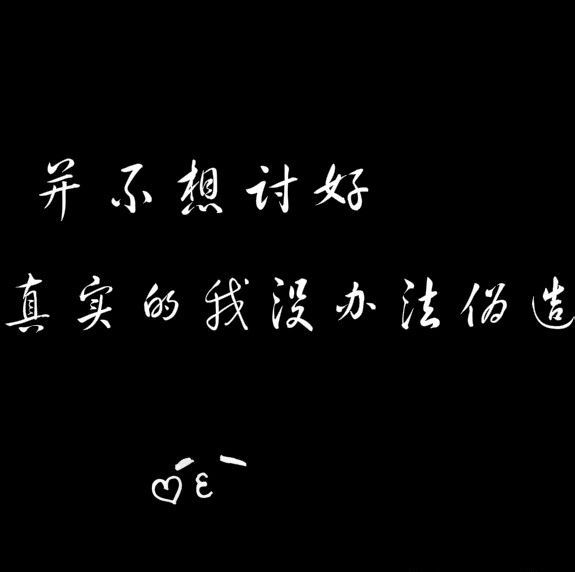 并不想讨好
真实的我没办法伪造